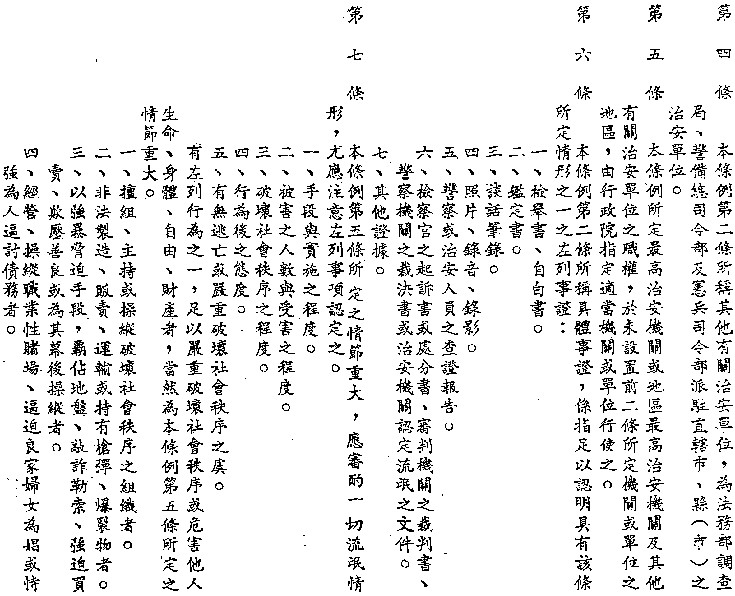 第四條　本條例第二條所稱其他有關治安單位，為法務部調查
局、警備總司令部及憲兵司令部派駐直轄市、縣（市）之
治安單位。
第五條　本條例所定最高治安機關或地區最高治安機關及其他
有關治安單位之職權，於未設置前二條所定機關或單位之
地區，由行政院指定適當機關或單位行使之。
第六條　本條例第二條所稱具體事證，係指足以認明具有該條
所定情形之一之左列事證：
一、檢舉書、自白書。
二、鑑定書。
三、談話筆錄。
四、照片、錄音、錄影。
五、警察或治安人員之查證報告。
六、檢察官之起訴書或處分書、審判機關之裁判書、
警察機關之裁決書或治安機關認定流氓之文件。
七、其他證據。
第七條　本條例第五條所定之情節重大，應審酌一切流氓情
形，尤應注意左列事項認定之。
一、手段與實施之程度。
二、被害之人數與受害之程度。
三、破壞社會秩序之程度。
四、行為後之態度。
五、有無逃亡或嚴重破壞社會秩序之虞。
有左列行為之一，足以嚴重破壞社會秩序或危害他人
生命、身體、自由、財產者，當然為本條例第五條所定之
情節重大。
一、擅組、主持或操縱破壞社會秩序之組織者。
二、非法製造、販賣、運輸或持有槍彈、爆裂物者。
三、以強暴脅迫手段，霸佔地盤、敲詐勒索、強迫買
賣、欺壓善良或為其幕後操縱者。
四、經營、操縱職業性賭場、逼迫良家婦女為娼或恃
強為人逼討債務者。